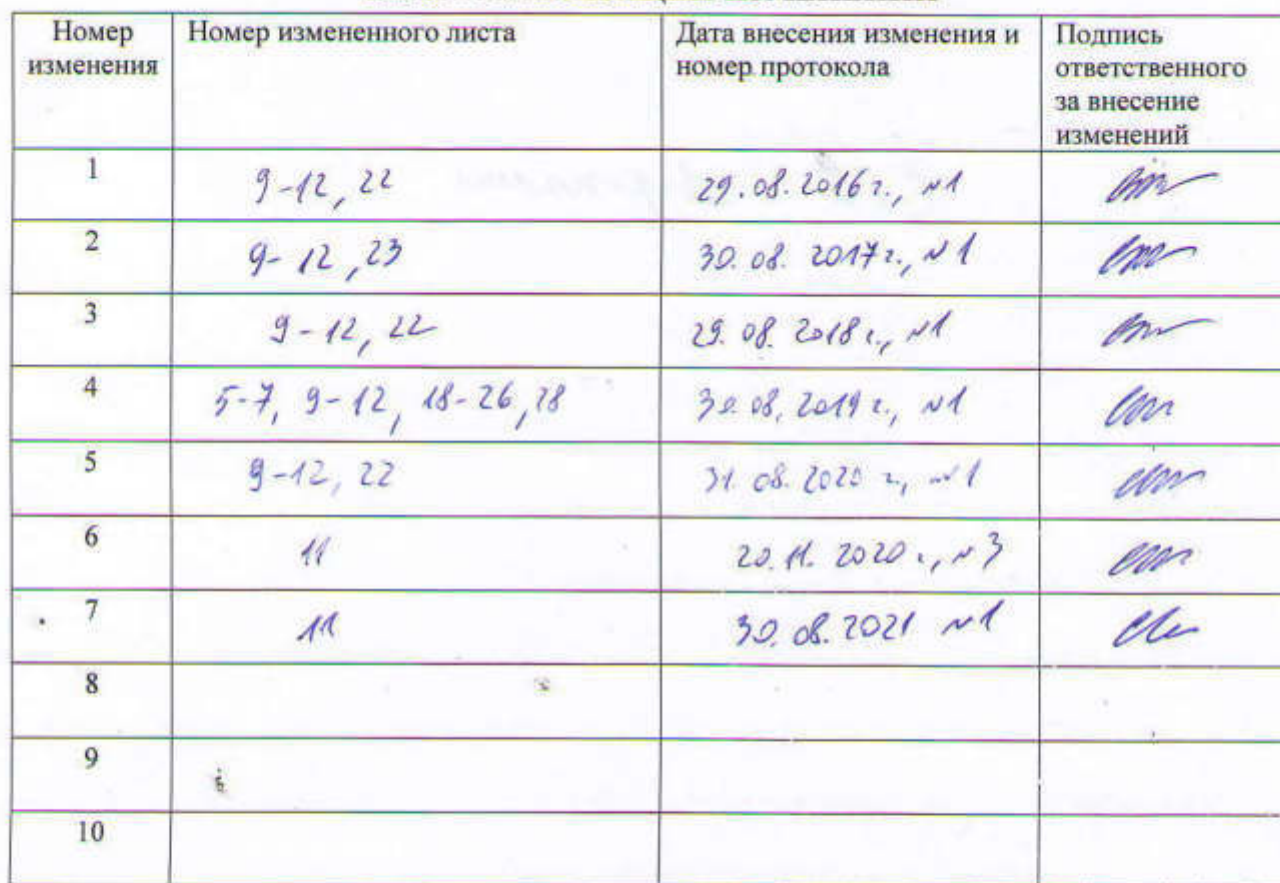 Номер изменения | Номер измененного листа | Дата внесения изменения и номер протокола | Подпись ответственного за внесение изменений
1 | 9-12, 22 | 29.08.2016 г., №1
2 | 9-12, 23 | 30.08.2017 г., №1
3 | 9-12, 22 | 29.08.2018 г., №1
4 | 5-7, 9-12, 18-26, 28 | 30.08.2019 г., №1
5 | 9-12, 22 | 31.08.2020 г., №1
6 | 11 | 20.11.2020 г., №3
7 | 11 | 30.08.2021 №1
8
9
10